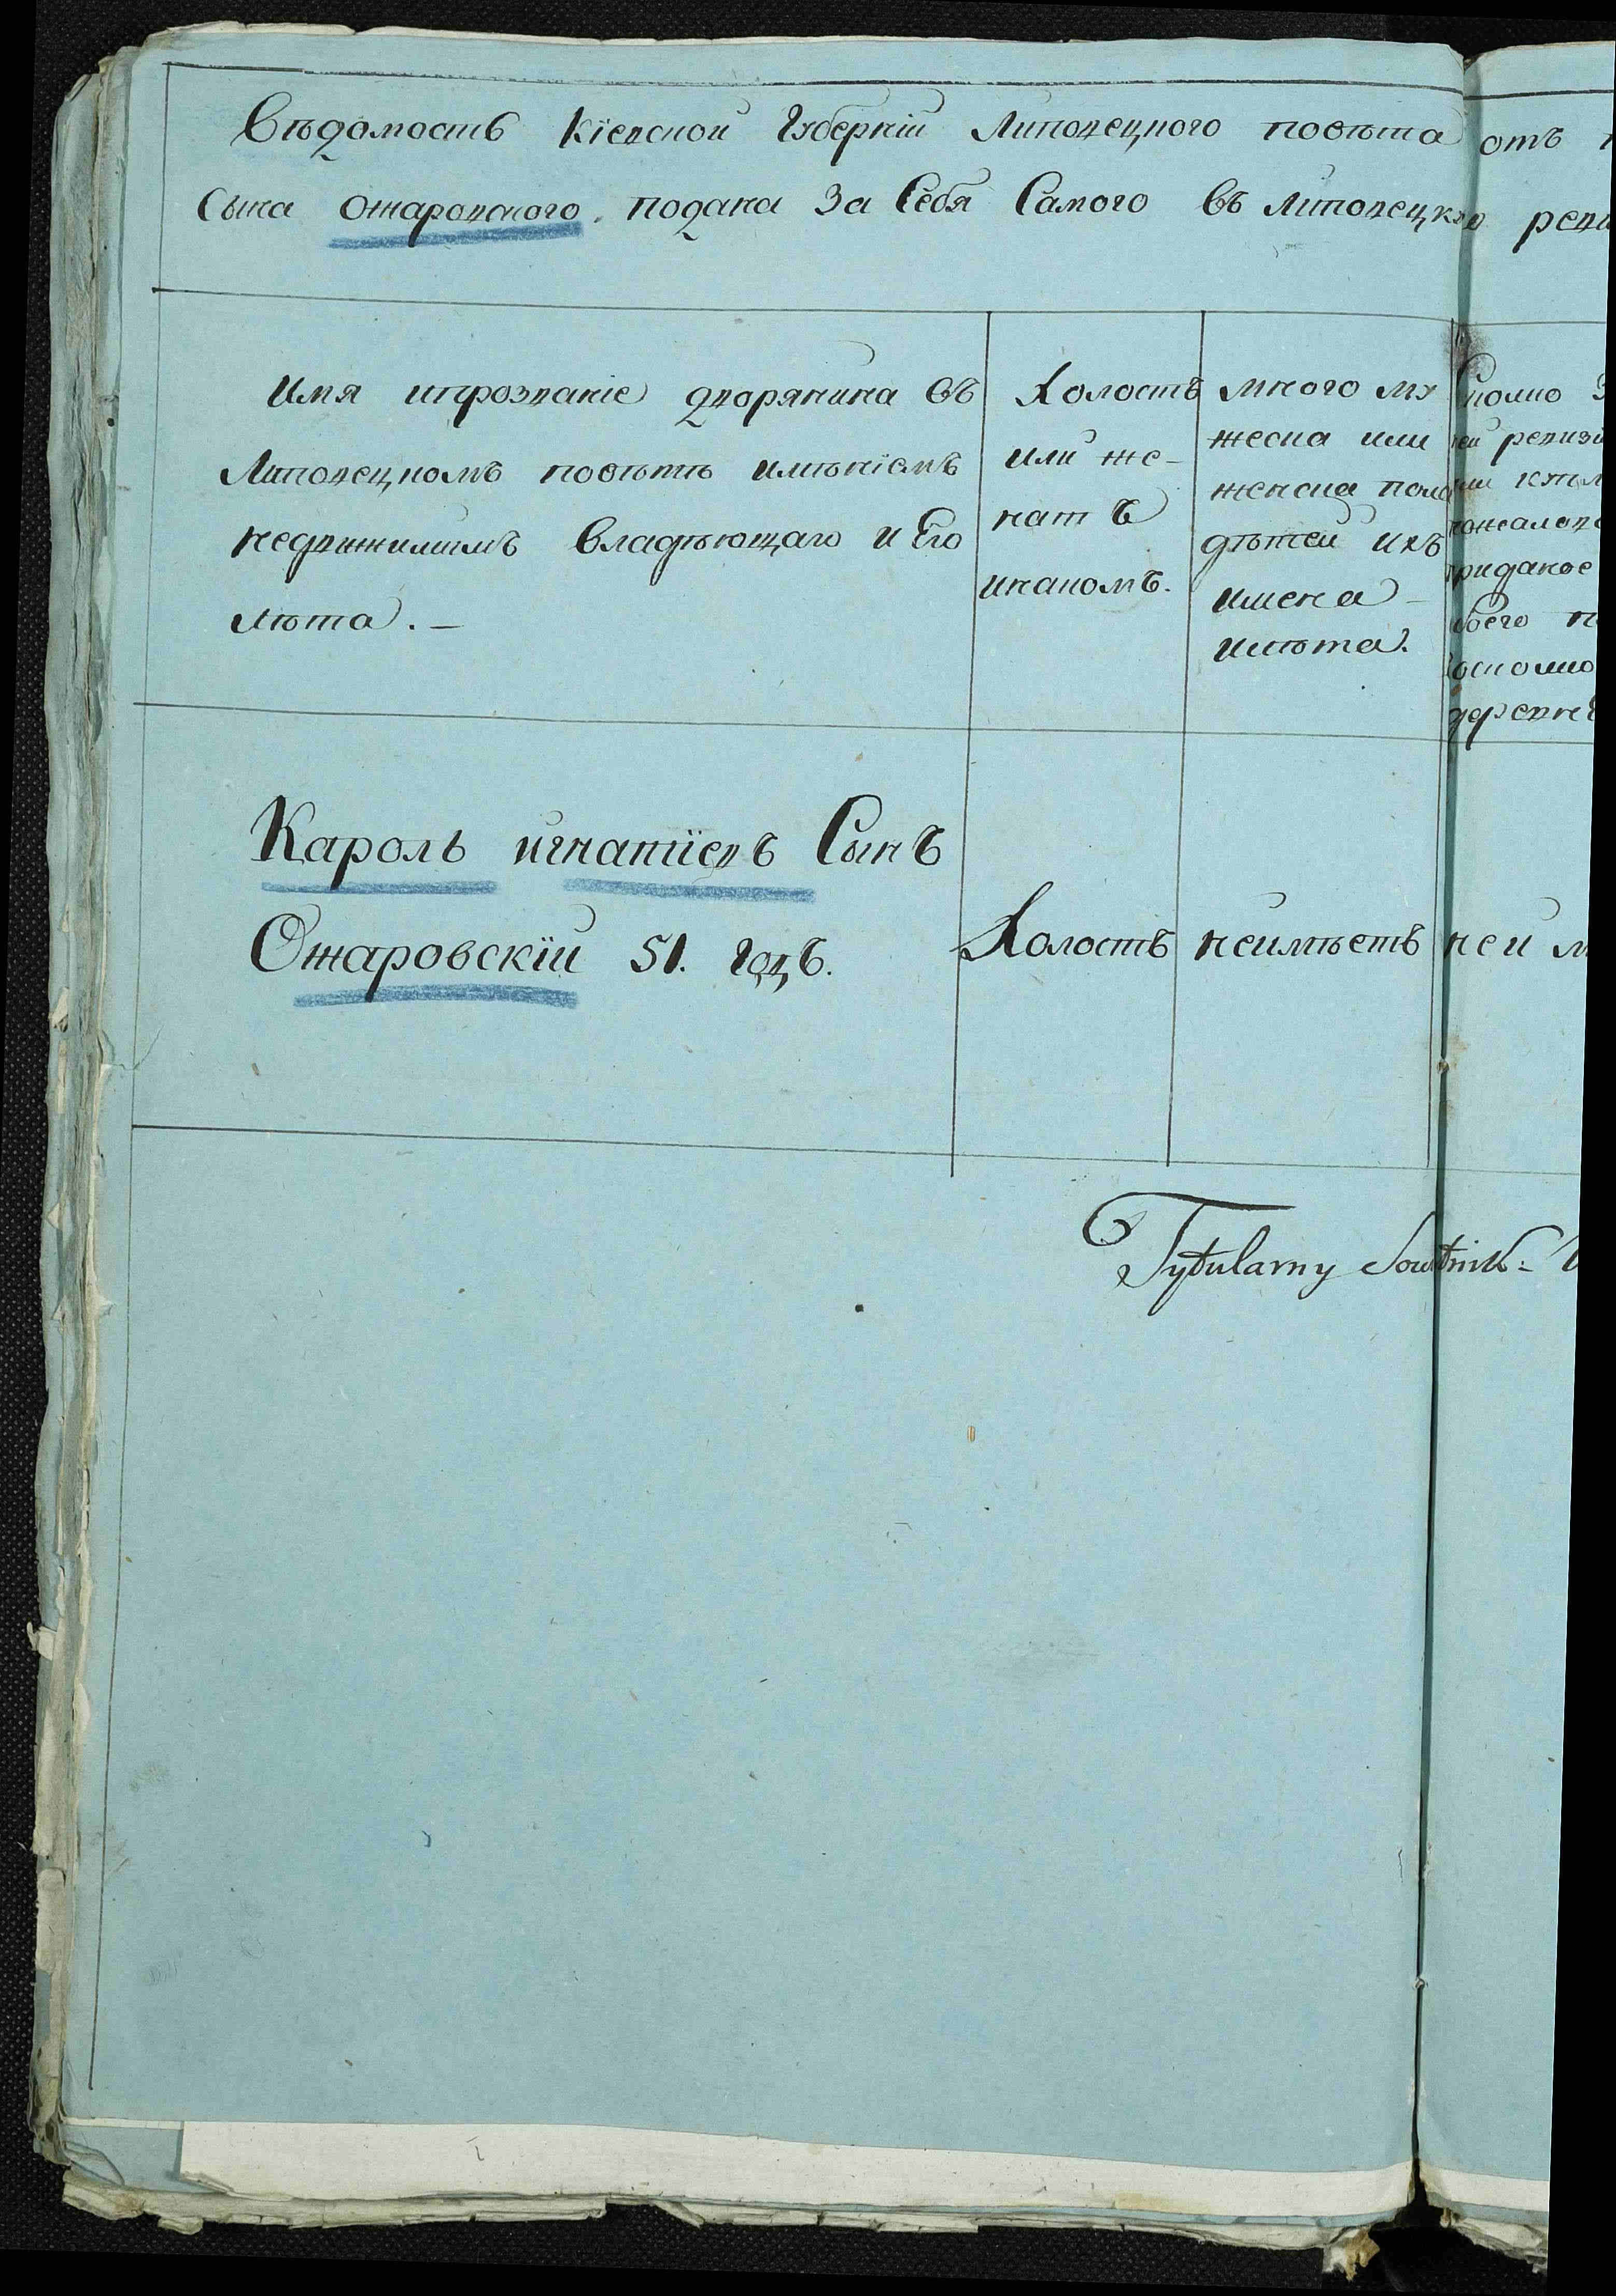 Вѣдомость Кіевской Губерніи Липовецкого повѣта отъ
Сына Ожаровского. подана За Себя Самого Въ Липовецкую реви
Имя ипрозваніе дворянина Въ
Липовецкомъ повѣтѣ имѣніемъ
недвижимимъ Владѣющаго и Его
лѣта. –
Холостъ
или же-
натъ
инакомъ.
много му
жеска или
женска пола
дѣтей ихъ
имена
илѣта.
ревизи
пожалова
приданое
деревне
Кароль игнатїевъ Сынъ
Ожаровскїи 51. годъ.
Холостъ
неимѣетъ
неим
Tytularny Sowitnik: